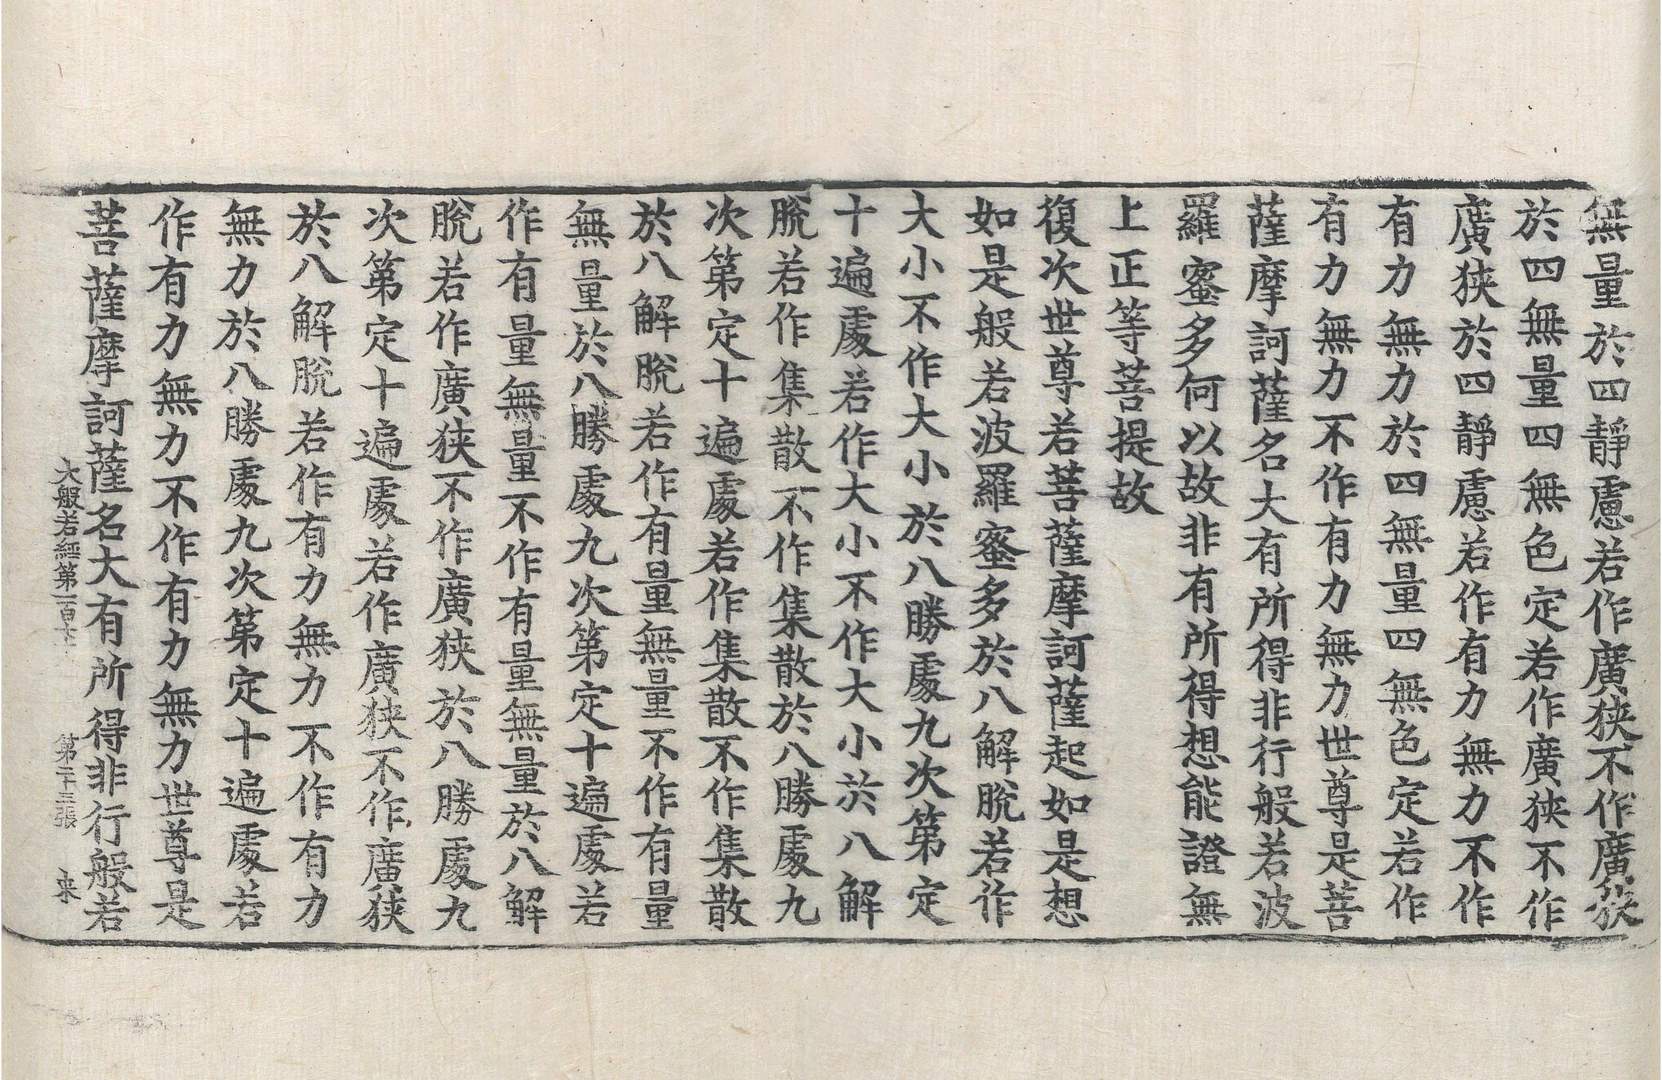 無量於四靜慮若作廣狹不作廣狹
於四無量四無色定若作廣狹不作
廣狹於四靜慮若作有力無力不作
有力無力於四無量四無色定若作
有力無力不作有力無力世尊是菩
薩摩訶薩名大有所得非行般若波
羅蜜多何以故非有所得想能證無
上正等菩提故
復次世尊若菩薩摩訶薩起如是想
如是般若波羅蜜多於八解脫若作
大小不作大小於八勝處九次第定
十遍處若作大小不作大小於八解
脫若作集散不作集散於八勝處九
次第定十遍處若作集散不作集散
於八解脫若作有量無量不作有量
無量於八勝處九次第定十遍處若
作有量無量不作有量無量於八解
脫若作廣狹不作廣狹於八勝處九
次第定十遍處若作廣狹不作廣狹
於八解脫若作有力無力不作有力
無力於八勝處九次第定十遍處若
作有力無力不作有力無力世尊是
菩薩摩訶薩名大有所得非行般若
大般若經第一百 第二十三張 来